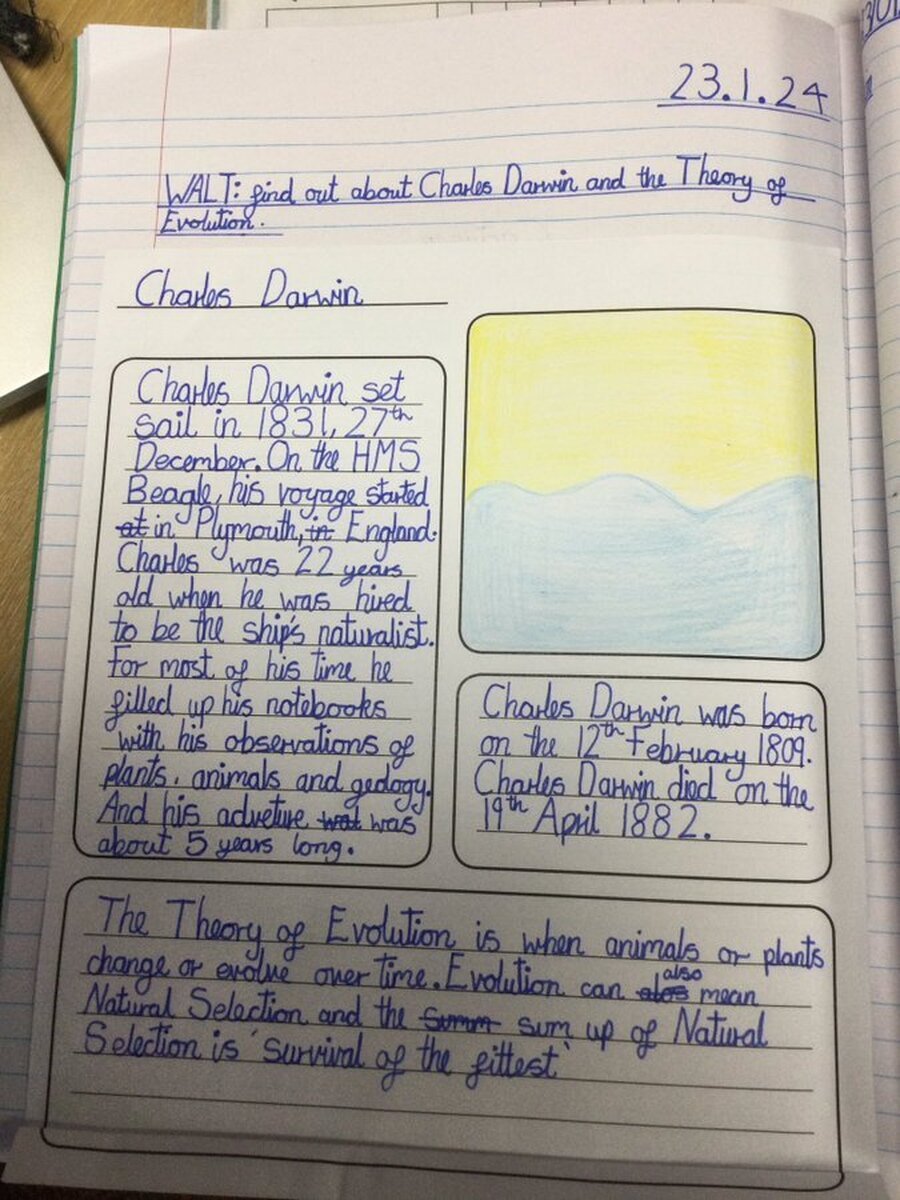 23.1.24
WALT: find out about Charles Darwin and the Theory of
Evolution.
Charles Darwin
Charles Darwin set
sail in 1831, 27th
December. On the HMS
Beagle, his voyage started
at in Plymouth, in England.
Charles was 22 years
old when he was hired
to be the ship's naturalist.
For most of his time he
filled up his notebooks
with his observations of
plants, animals and geology.
And his adveture wat was
about 5 years long.
Charles Darwin was born
on the 12th February 1809.
Charles Darwin died on the
19th April 1882.
The Theory of Evolution is when animals or plants
change or evolve over time. Evolution can alos also mean
Natural Selection and the summ sum up of Natural
Selection is 'survival of the fittest'